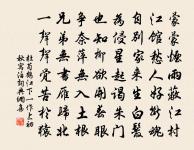 濛濛煙雨蔽江村
江館愁人好斷魂
自別家來生白髮
為侵星起謁朱門
也知柳欲開春眼
爭奈萍無入土根
兄弟無書雁歸北
一聲聲覺苦於猿
杜荀鶴江下一作上初
秋寓泊詩典網集